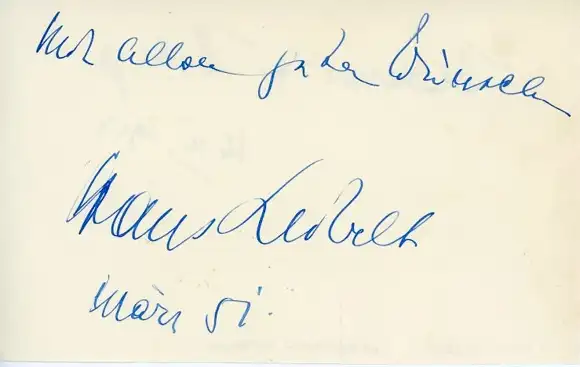 Mit allen guten Wünschen
Hans Leibelt
März 51.